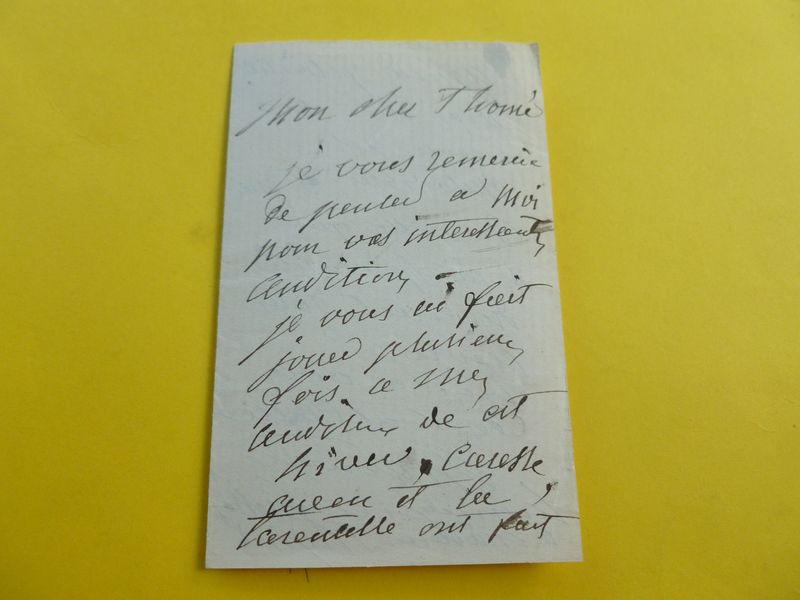 Mon cher Thomé
je vous remercie
de penser a moi
pour vos interessantes
auditions
je vous ai fait
jouer plusieurs
fois a mes
auditions de cet
hiver, Caresse
et la
tarentelle ont fait